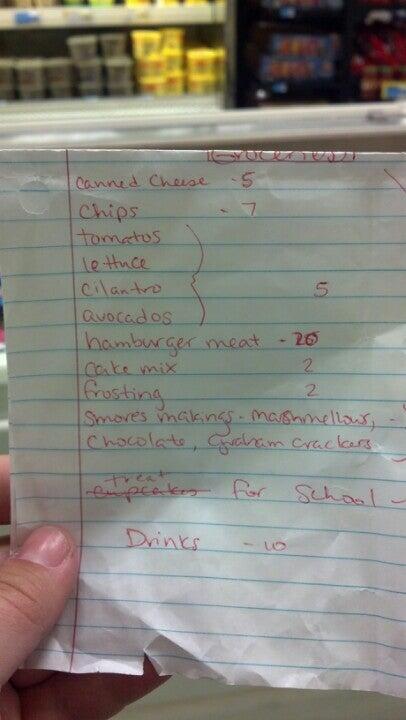 (Groceries)
canned cheese - 5
chips - 7
tomatos
lettuce
cilantro 5
avocados
hamburger meat -
cake mix 2
frosting 2
Smores makings - Marshmellows, -
Chocolate, Graham Crackers
treat
cupcakes for School -
Drinks - 10